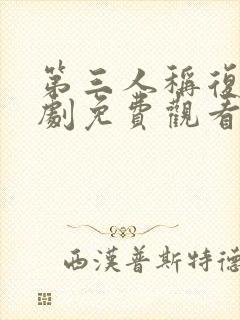 第三人稱復
劇免費觀看
西漢普斯特德